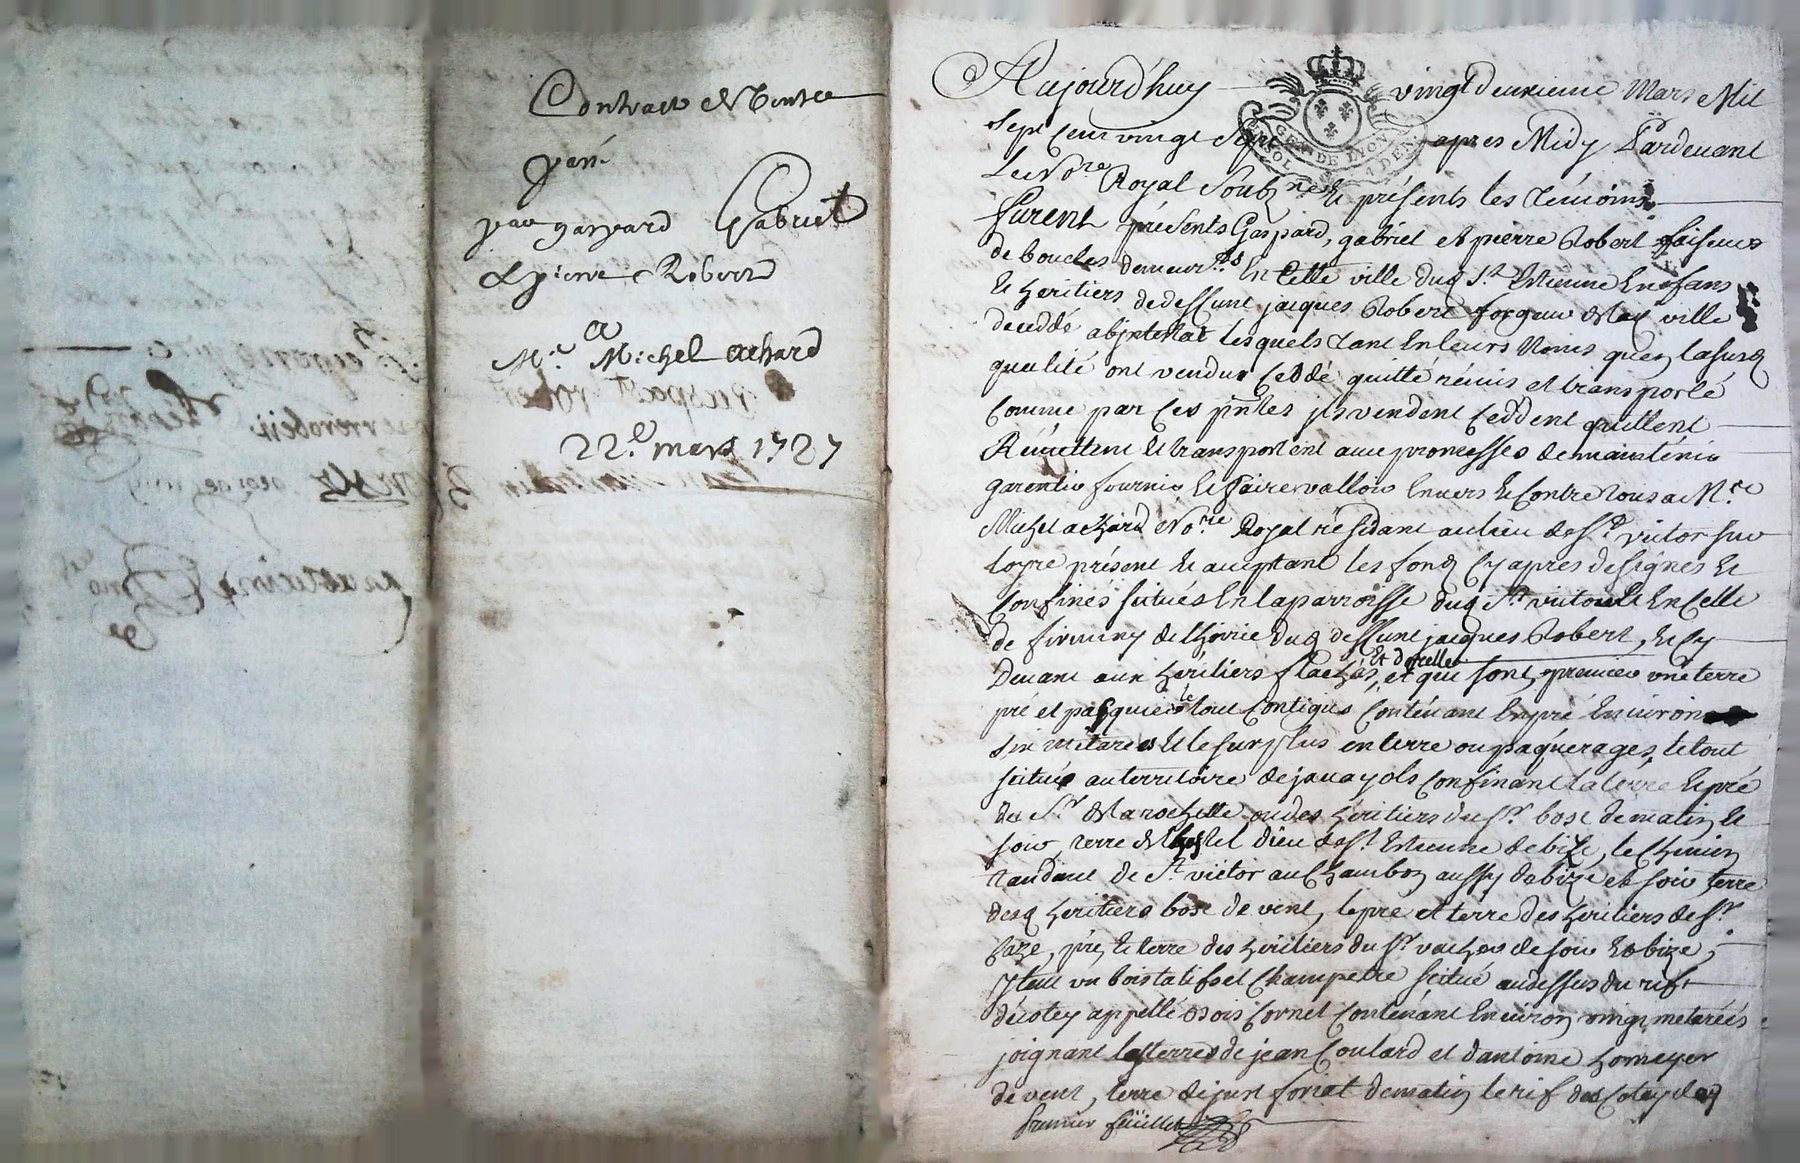 Contract de Vente
par
jean gaspard Gabriel
& pierre Robert
a
Me Michel achard
22e mars 1727
Aujourd'huy vingt deuxieme Mars Mil
GEN DE LYON
SOL
DEN
sept cent vingt sept apres Midy Pardevant
Le Nore Royal soubsne & présents les témoins
furent présents Gaspard, gabriel et pierre Robert faiseurs
de boucles demeurts en cette ville dud St Estienne Enfans
& heritiers de deffunt jacques Robert forgeur de lad ville
decedé abjntestat lesquels tant en leurs Noms quen lasusd
qualité ont vendus Ceddé quitté rémis et transporté
comme par ces pntes jls vendent Ceddent quittent
Rémettent et transportent avec promesses de maintenir
garentir fournir et faire valloir envers et contre tous a Mre
Michel achard Nore Royal résidant au lieu de St victor sur
loyre présent et acceptant les fonds cy apres designés et
Confinés scitués en la parroisse dud St victor et en celle
de firminy de lhoirie dud deffunt jacques Robert, et cy
Devant aux héritiers flachés, et qui sont, premier une terre
et dorelle
pré et pasquier le tout contigus contenant en pré environ
six métarées et le surplus en terre ou paquerages, le tout
scitué au territoire de confinant la terre et pré
du Sr de la rochette ou des héritiers du Sr bose de matin et
soir, terre de lhostel dieu de St Estienne de bize, le chemin
tandant de St victor au Chambon aussy de bize et soir terre
desd heritiers bose de vent, le pré et terre des heritiers de Sr
pré, & terre des héritiers du Sr vacher de soir & bize,
Item un bois talifs et champetre scitué audessus du rif
décotey appellé bois Cornet contenant environ vingt metarées
joignant les terres de jean Coulard et dantoine
de vent, terre de just foriat de matin le rif de Cotey
premier feüillet